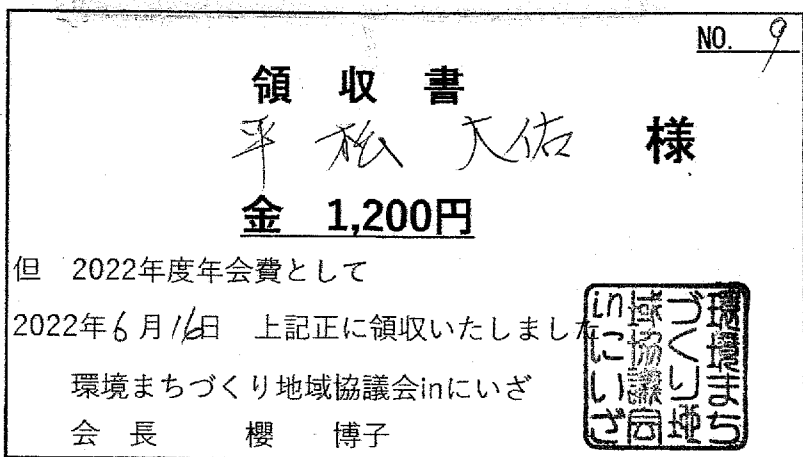 NO. 9
領 収 書
平 松 大佑 様
金 1,200円
但 2022年度年会費として
2022年6月16日 上記正に領収いたしました
環境まちづくり地域協議会inにいざ
会 長 櫻 博子
環境まち
づくり地
域協議会
inにいざ